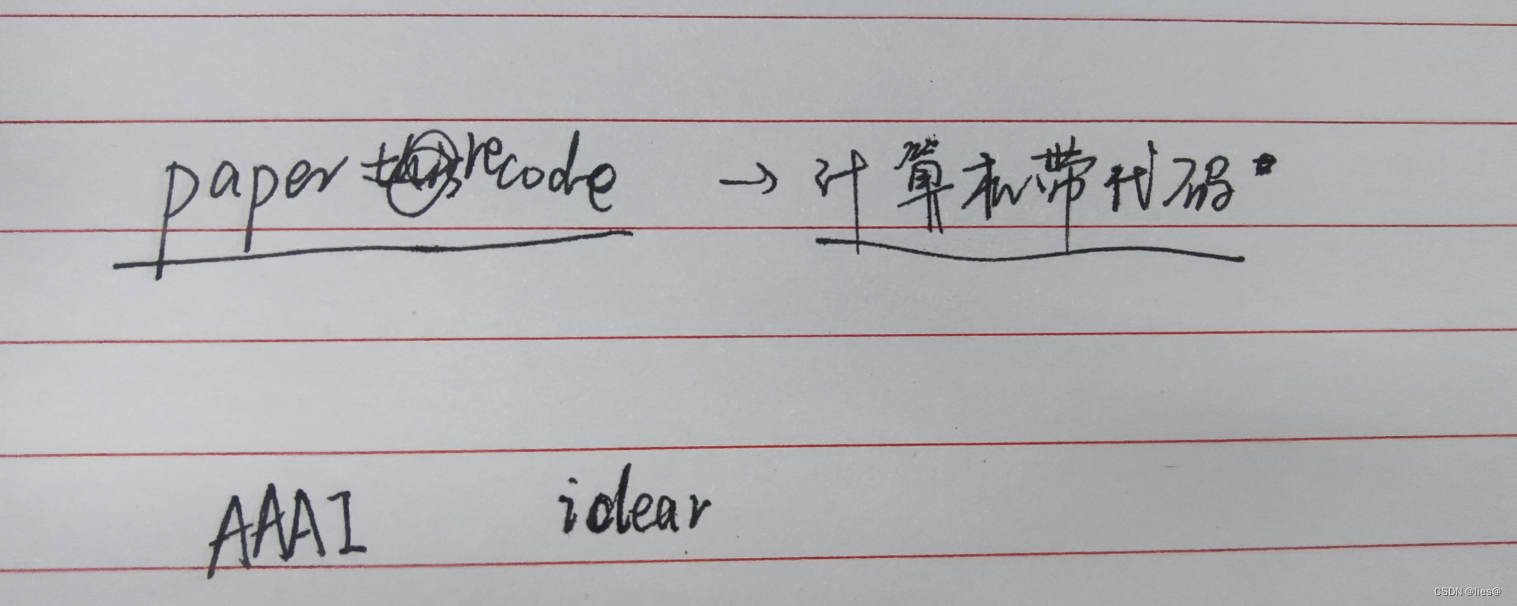 paper recode → 计算机带代码
AAAI idear
CSDN @lies@